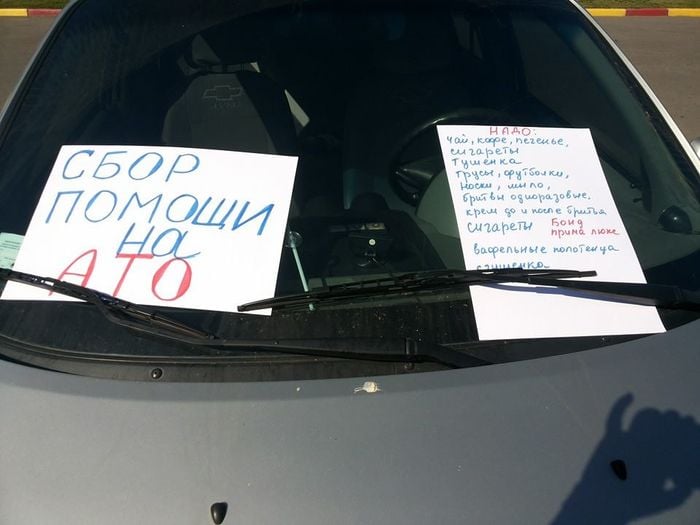 СБОР
ПОМОЩИ
на
АТО
НАДО:
чай, кофе, печенье,
сигареты
тушенка
трусы, футболки,
носки, мыло,
бритвы одноразовые,
крем до и после бритья
сигареты Бонд
прима люкс
вафельные полотенца
сгушенка